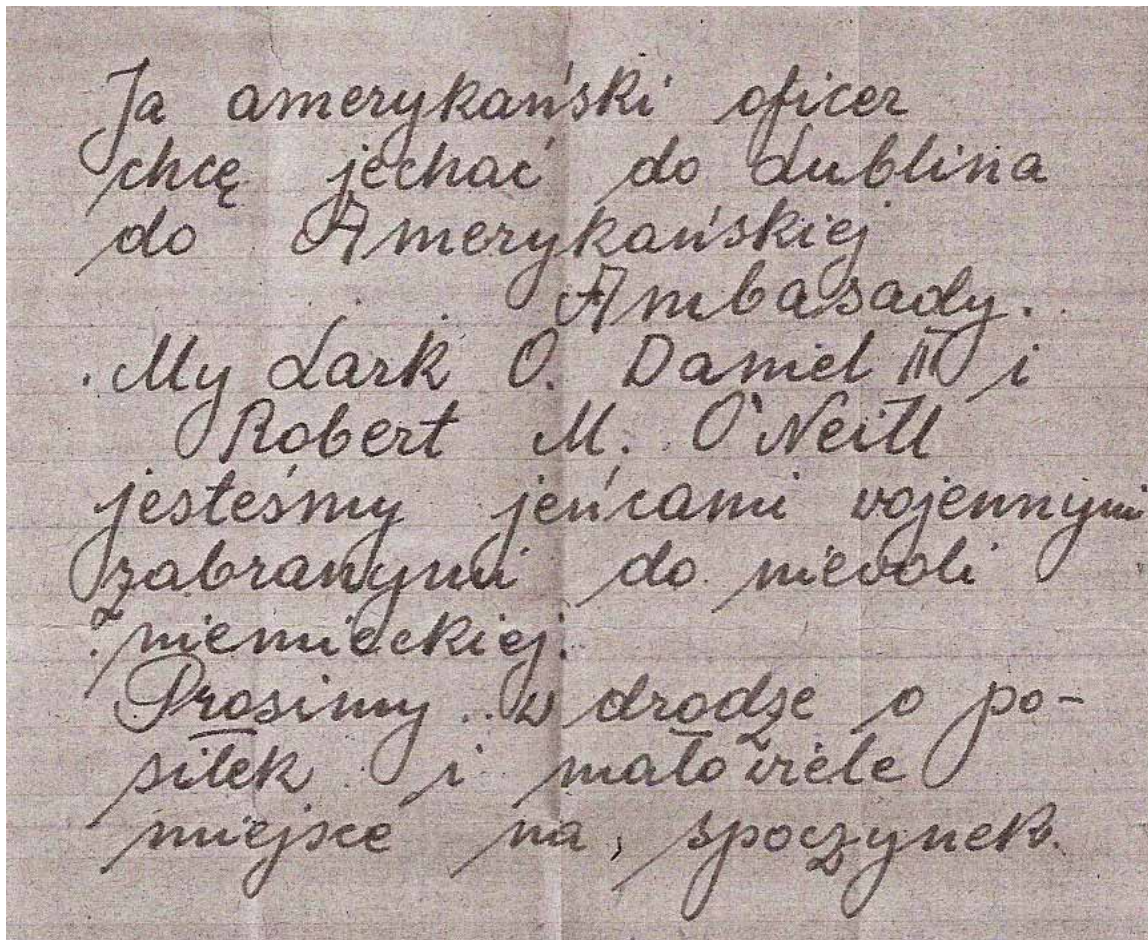 Ja amerykański oficer
chcę jechać do Lublina
do Amerykańskiej
Ambasady.
My Lark O. Daniel III i
Robert M. O'Neill
jesteśmy jeńcami wojennymi
zabranymi do niewoli
niemieckiej.
Prosimy w drodze o po-
siłek i mało wiele
miejsce na spoczynek.